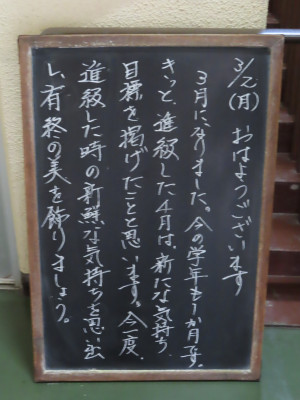 3/2(月) おはようございます
3月になりました。今の学年も1か月です。
きっと、進級した4月は、新たな気持ち、
目標を掲げたことと思います。今一度、
進級した時の新鮮な気持ちを思い出
し、有終の美を飾りましょう。